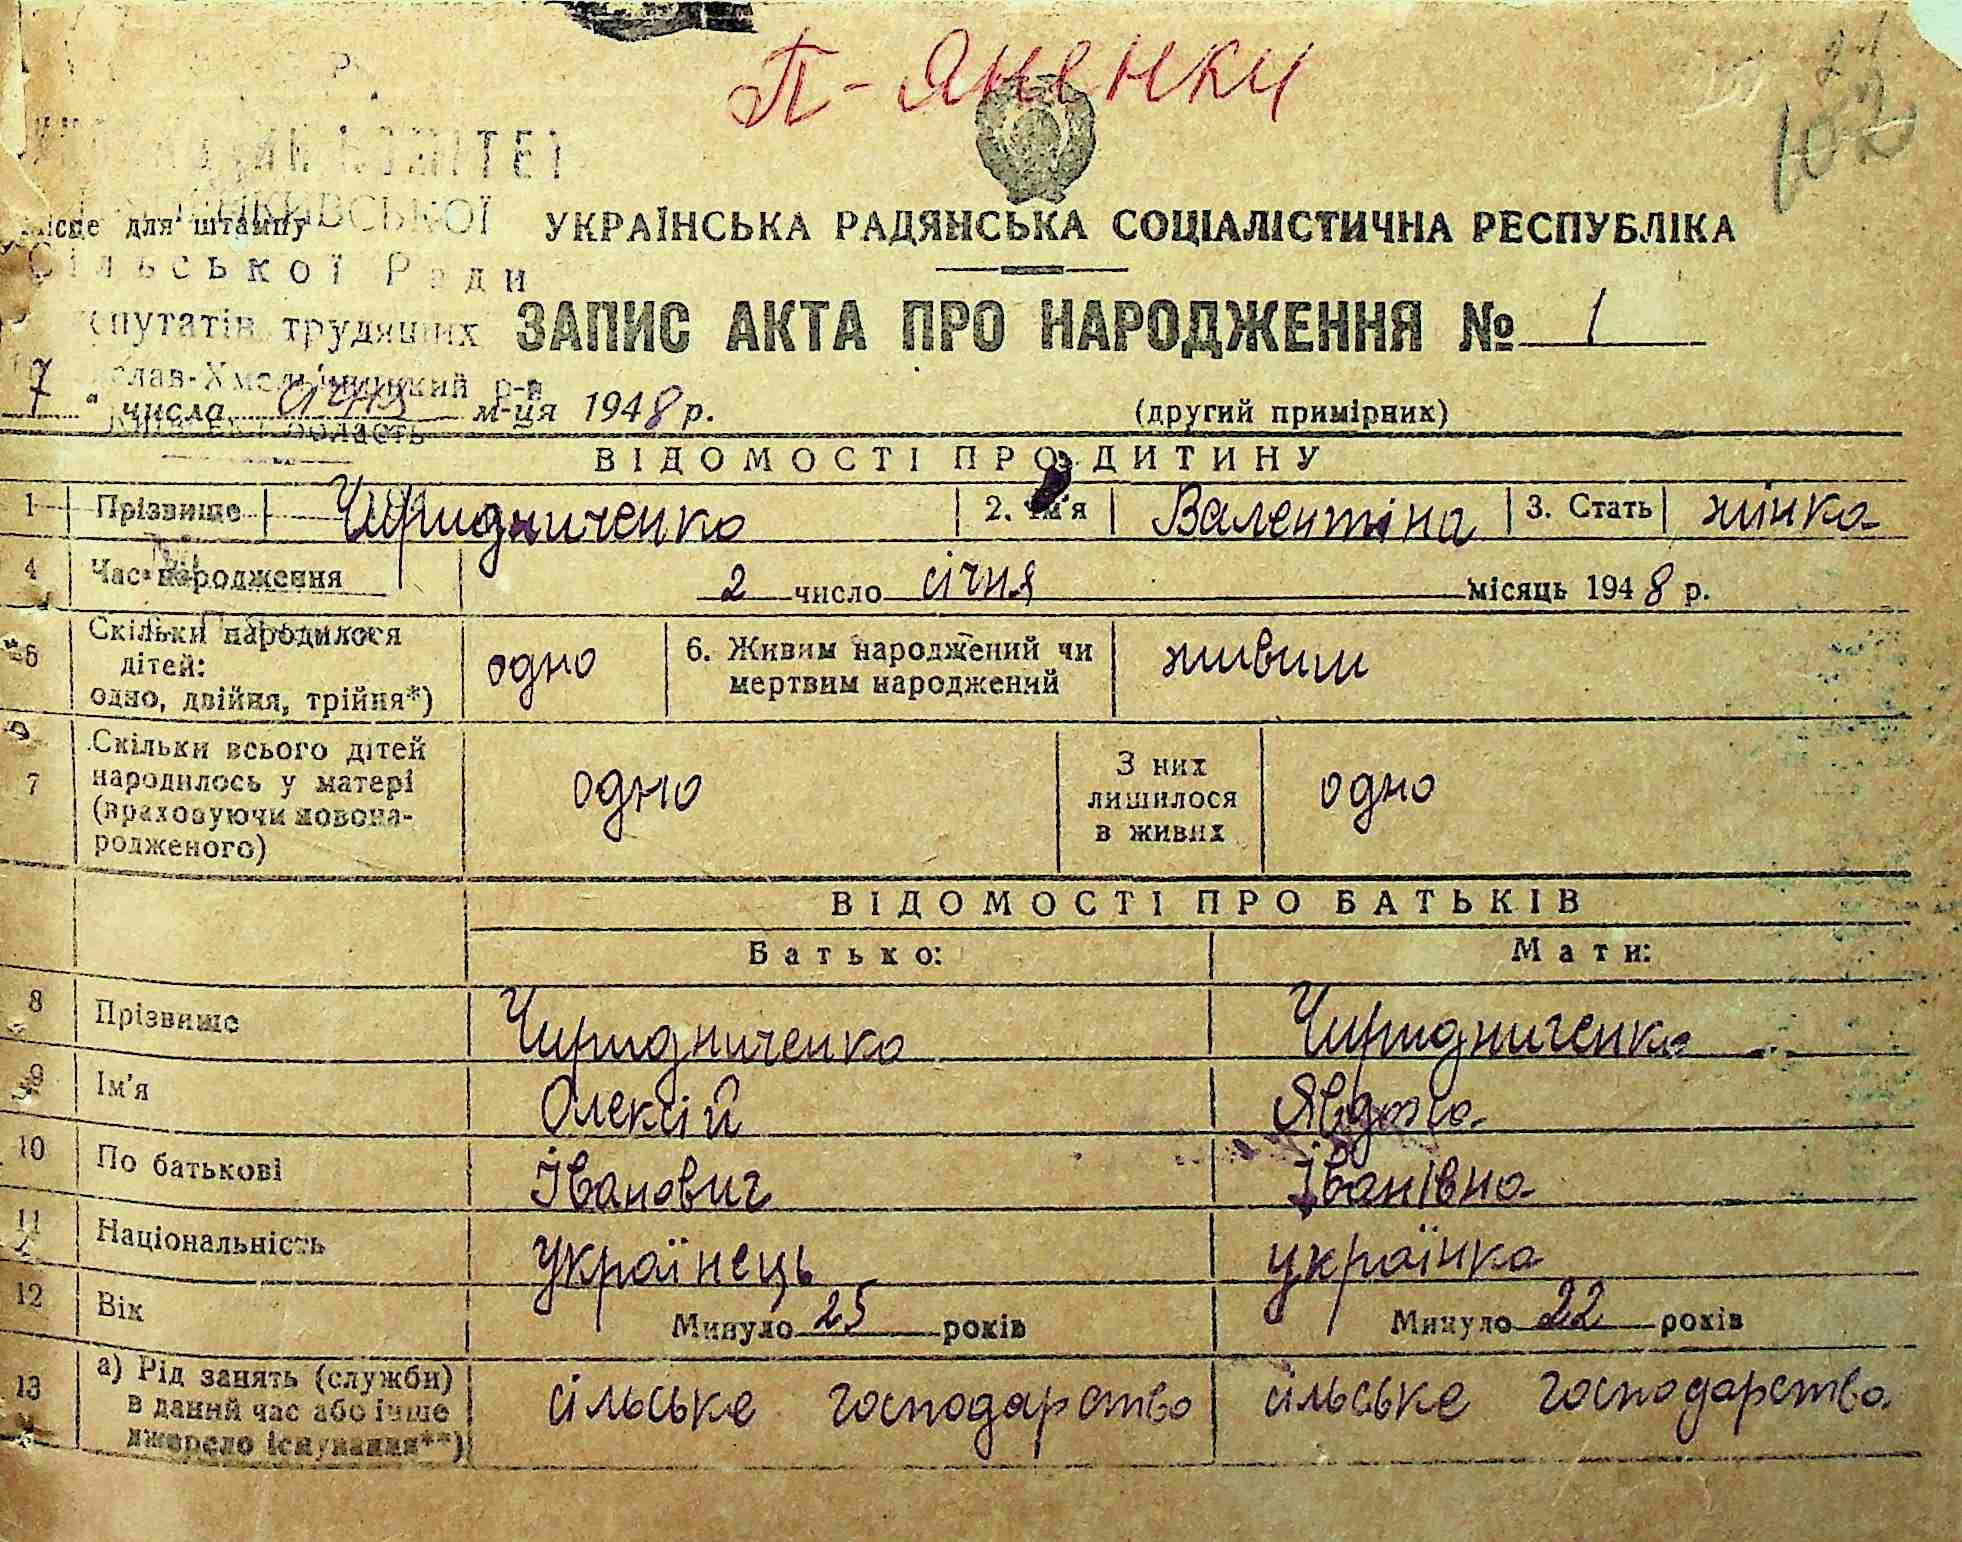 П-Яненки
102
КОМІТЕТ
СЬКОЇ
Місце для штампу
УКРАЇНСЬКА РАДЯНСЬКА СОЦІАЛІСТИЧНА РЕСПУБЛІКА
Сільської Ради
депутатів трудящих
ЗАПИС АКТА ПРО НАРОДЖЕННЯ № 1
Хмельницкий р-н
7 " числа січня м-ця 1948 р.
(другий примірник)
область
ВІДОМОСТІ ПРО ДИТИНУ
1 Прізвище Чиридниченко 2. Ім'я Валентіна 3. Стать жінка
4 Час народження 2 число січня місяць 1948 р.
5 Скільки народилося дітей: одно, двійня, трійня*) одно 6. Живим народжений чи мертвим народжений живим
7 Скільки всього дітей народилось у матері (враховуючи новонародженого) одно З них лишилося в живих одно
ВІДОМОСТІ ПРО БАТЬКІВ
Батько: Мати:
8 Прізвище Чиридниченко Чиридниченко
9 Ім'я Олексій Явдоха
10 По батькові Іванович Іванівна
11 Національність українець українка
12 Вік Минуло 25 років Минуло 22 років
13 а) Рід занять (служби) в даний час або інше джерело існування**) сільське господарство сільське господарство